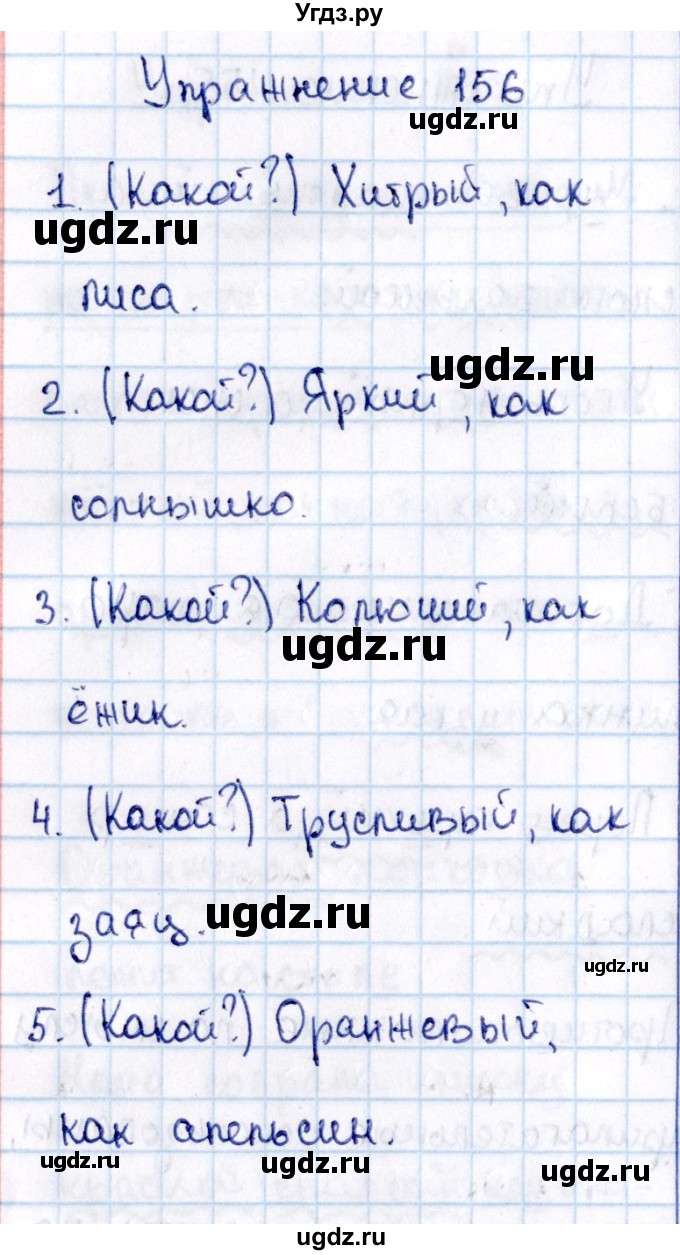 Угдз.ру
Упражнение 156
ugdz.ru
1. (Какой?) Хитрый, как
ugdz.ru
лиса.
ugdz.ru
2. (Какой?) Яркий, как
солнышко.
3. (Какой?) Колючий, как
ugdz.ru
ёжик.
4. (Какой?) Трусливый, как
ugdz.ru
заяц.
ugdz.ru
5. (Какой?) Оранжевый,
как апельсин.
ugdz.ru
ugdz.ru
ugdz.ru
ugdz.ru